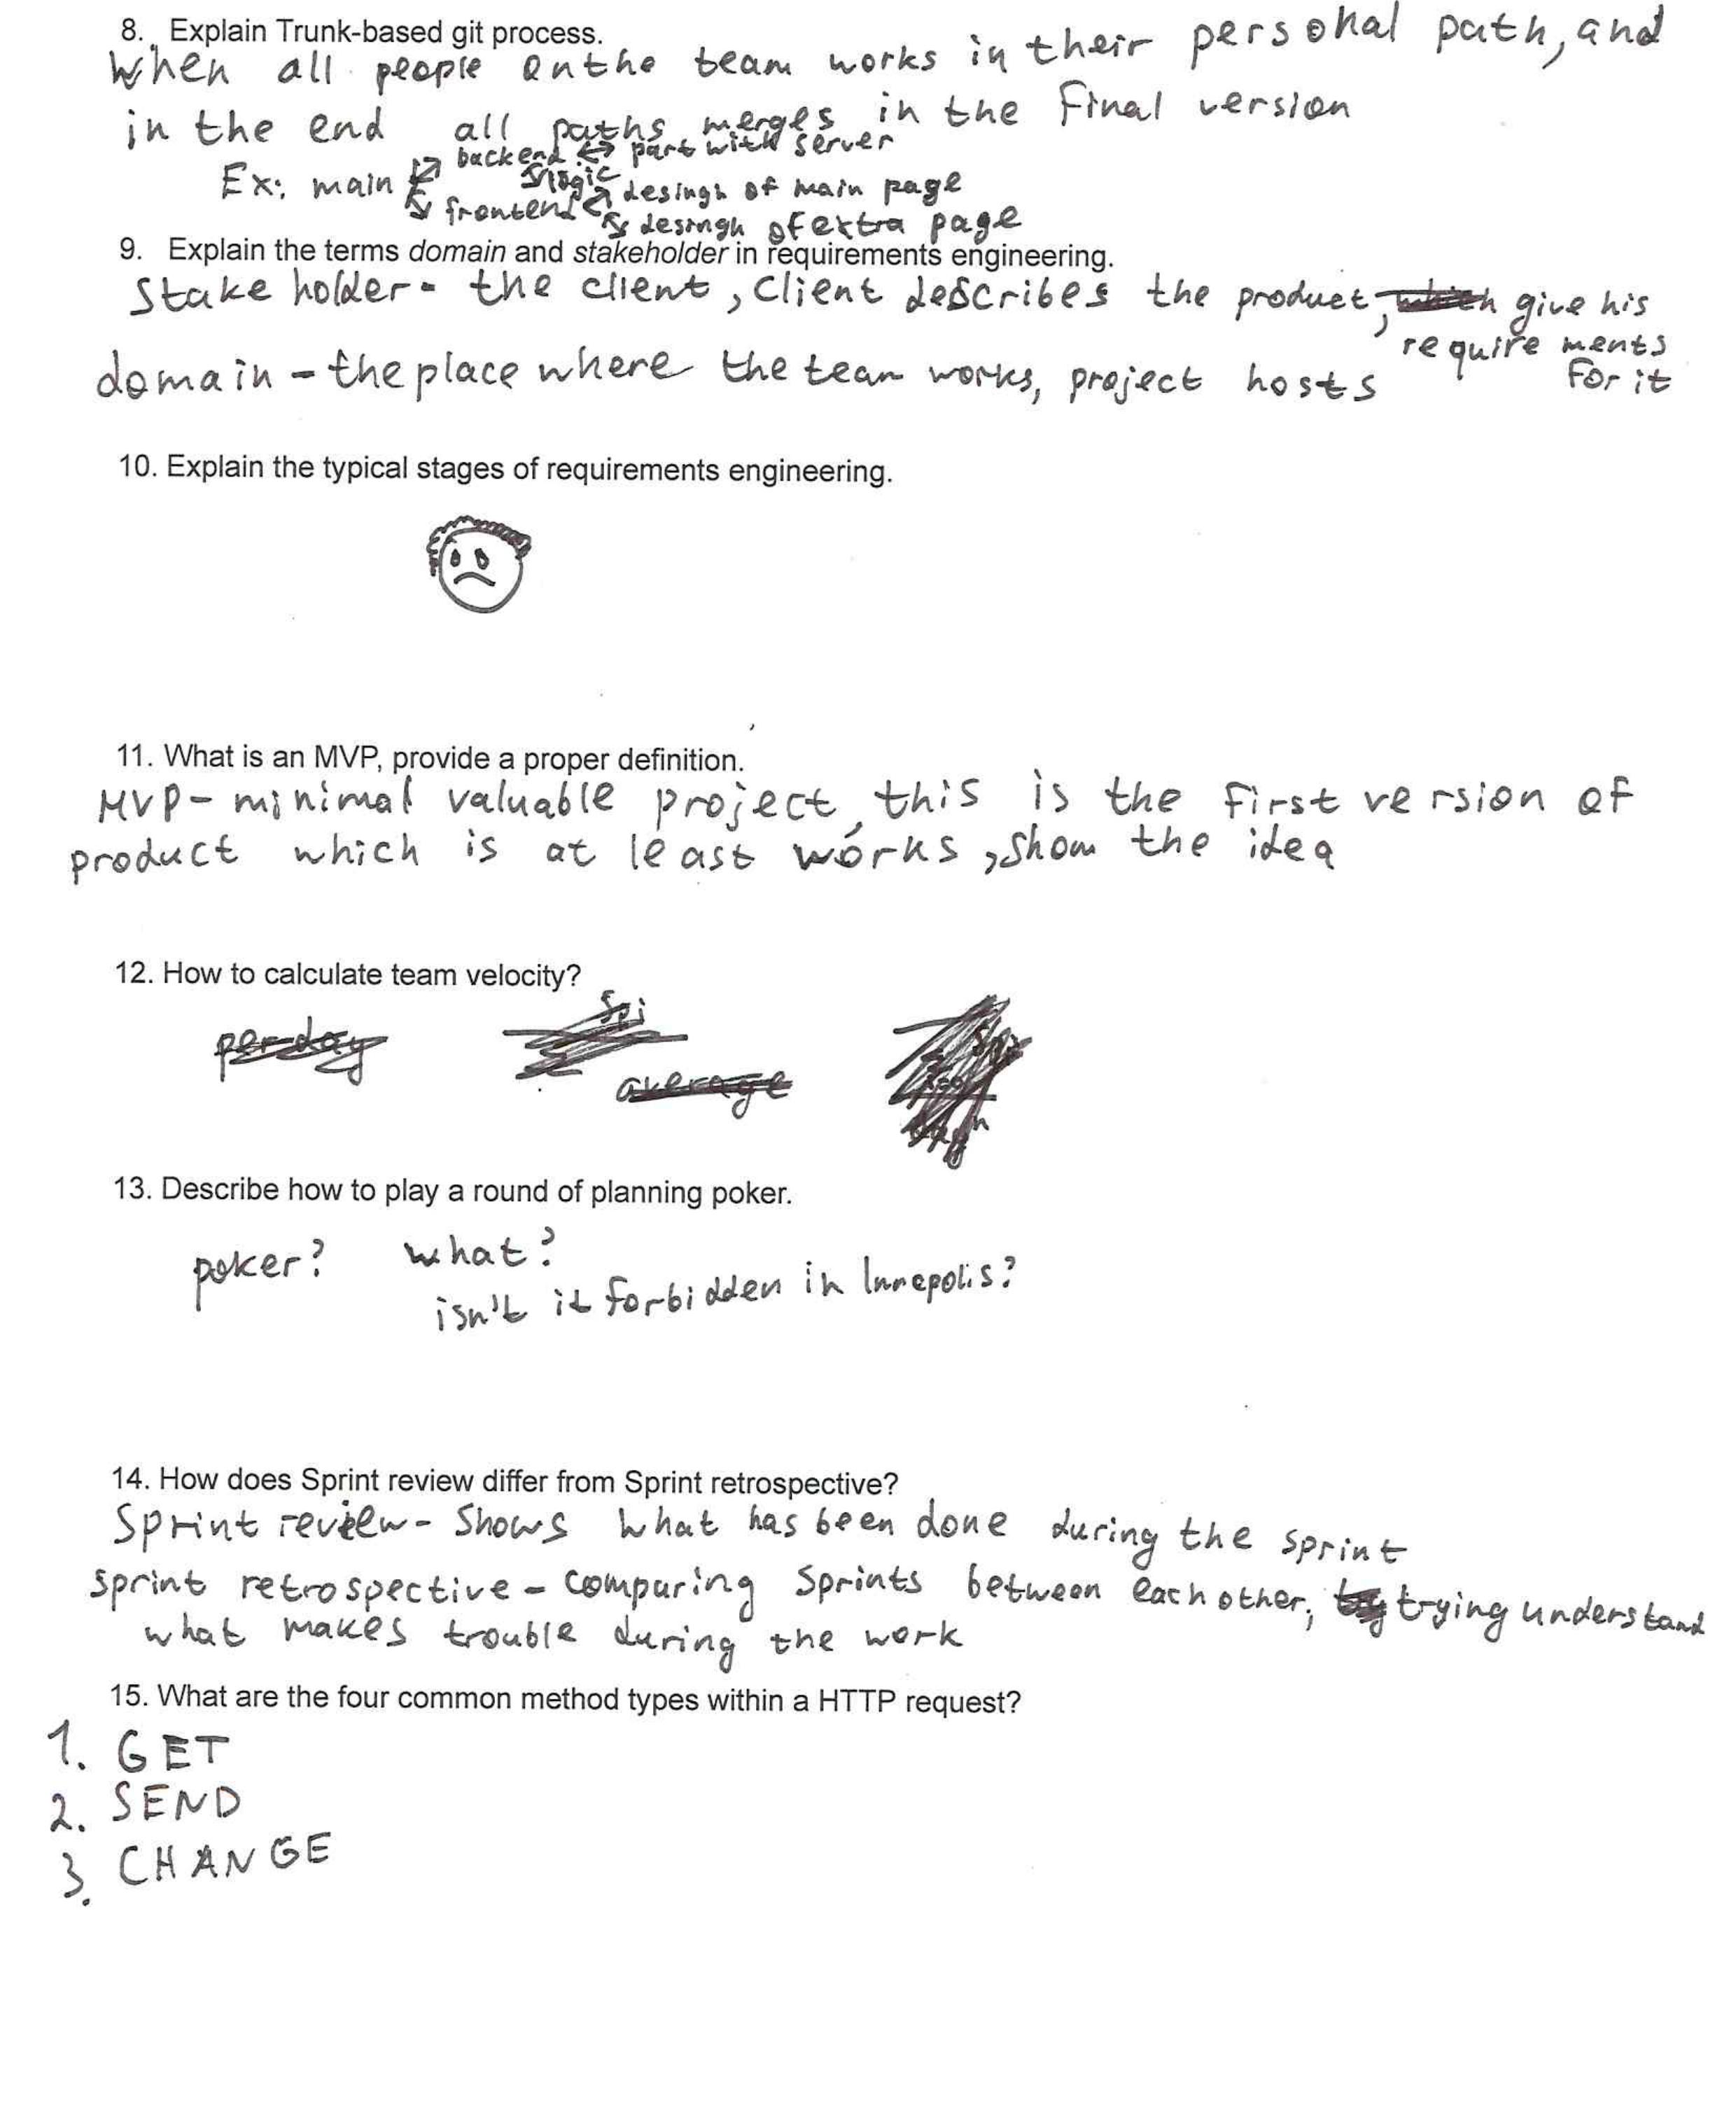 8. Explain Trunk-based git process.
When all people on the team works in their personal path, and
in the end all paths merges in the final version
Ex: main backend ↔ part with server
logic
frontend desingh of main page
desingh of extra page
9. Explain the terms domain and stakeholder in requirements engineering.
Stake holder - the client, client describes the product, give his
requirements
for it
domain - the place where the team works, project hosts
10. Explain the typical stages of requirements engineering.
11. What is an MVP, provide a proper definition.
MVP - minimal valuable project, this is the first version of
product which is at least works, show the idea
12. How to calculate team velocity?
per day
average
13. Describe how to play a round of planning poker.
poker? what?
isn't it forbidden in Innopolis?
14. How does Sprint review differ from Sprint retrospective?
Sprint review - Shows what has been done during the sprint
sprint retrospective - comparing sprints between each other, trying understand
what makes trouble during the work
15. What are the four common method types within a HTTP request?
1. GET
2. SEND
3. CHANGE